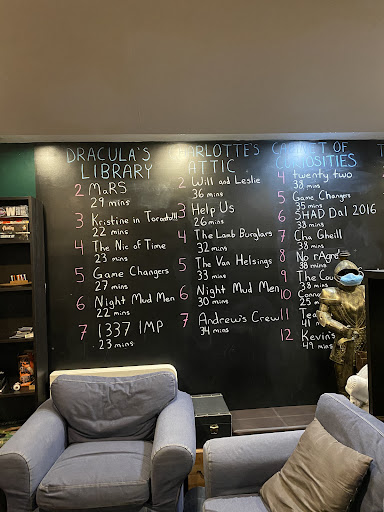 DRACULA'S
LIBRARY
2 MaRS
29 mins
3 Kristine in Torontull
22 mins
4 The Nic of Time
23 mins
5 Game Changers
27 mins
6 Night Mud Men
22 mins
7 1337 IMP
23 mins
ARLOTTE'S
ATTIC
2 Will and Leslie
36 mins
3 Help Us
26 mins
4 The Lamb Burglars
32 mins
5 The Van Helsings
33 mins
6 Night Mud Men
30 mins
7 Andrew's Crew
34 mins
CABINET OF
CURIOSITIES
4 twenty two
38 mins
5 Game Changers
35 mins
6 SHAD Dal 2016
38 mins
7 Cha Gheill
38 mins
8 No rAgre
38 mins
9 The Cou
38 mins
10 Conn
25 mins
11 Tea
41 m
12 Kevin's
49 mins